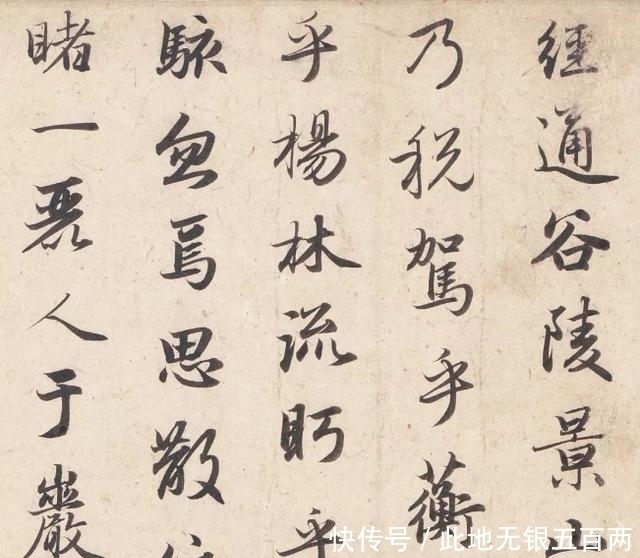 經通谷陵景
乃稅駕乎蘅
乎楊林流眄乎
駭忽焉思散
睹一麗人于巖
快传号/此地无银五百两